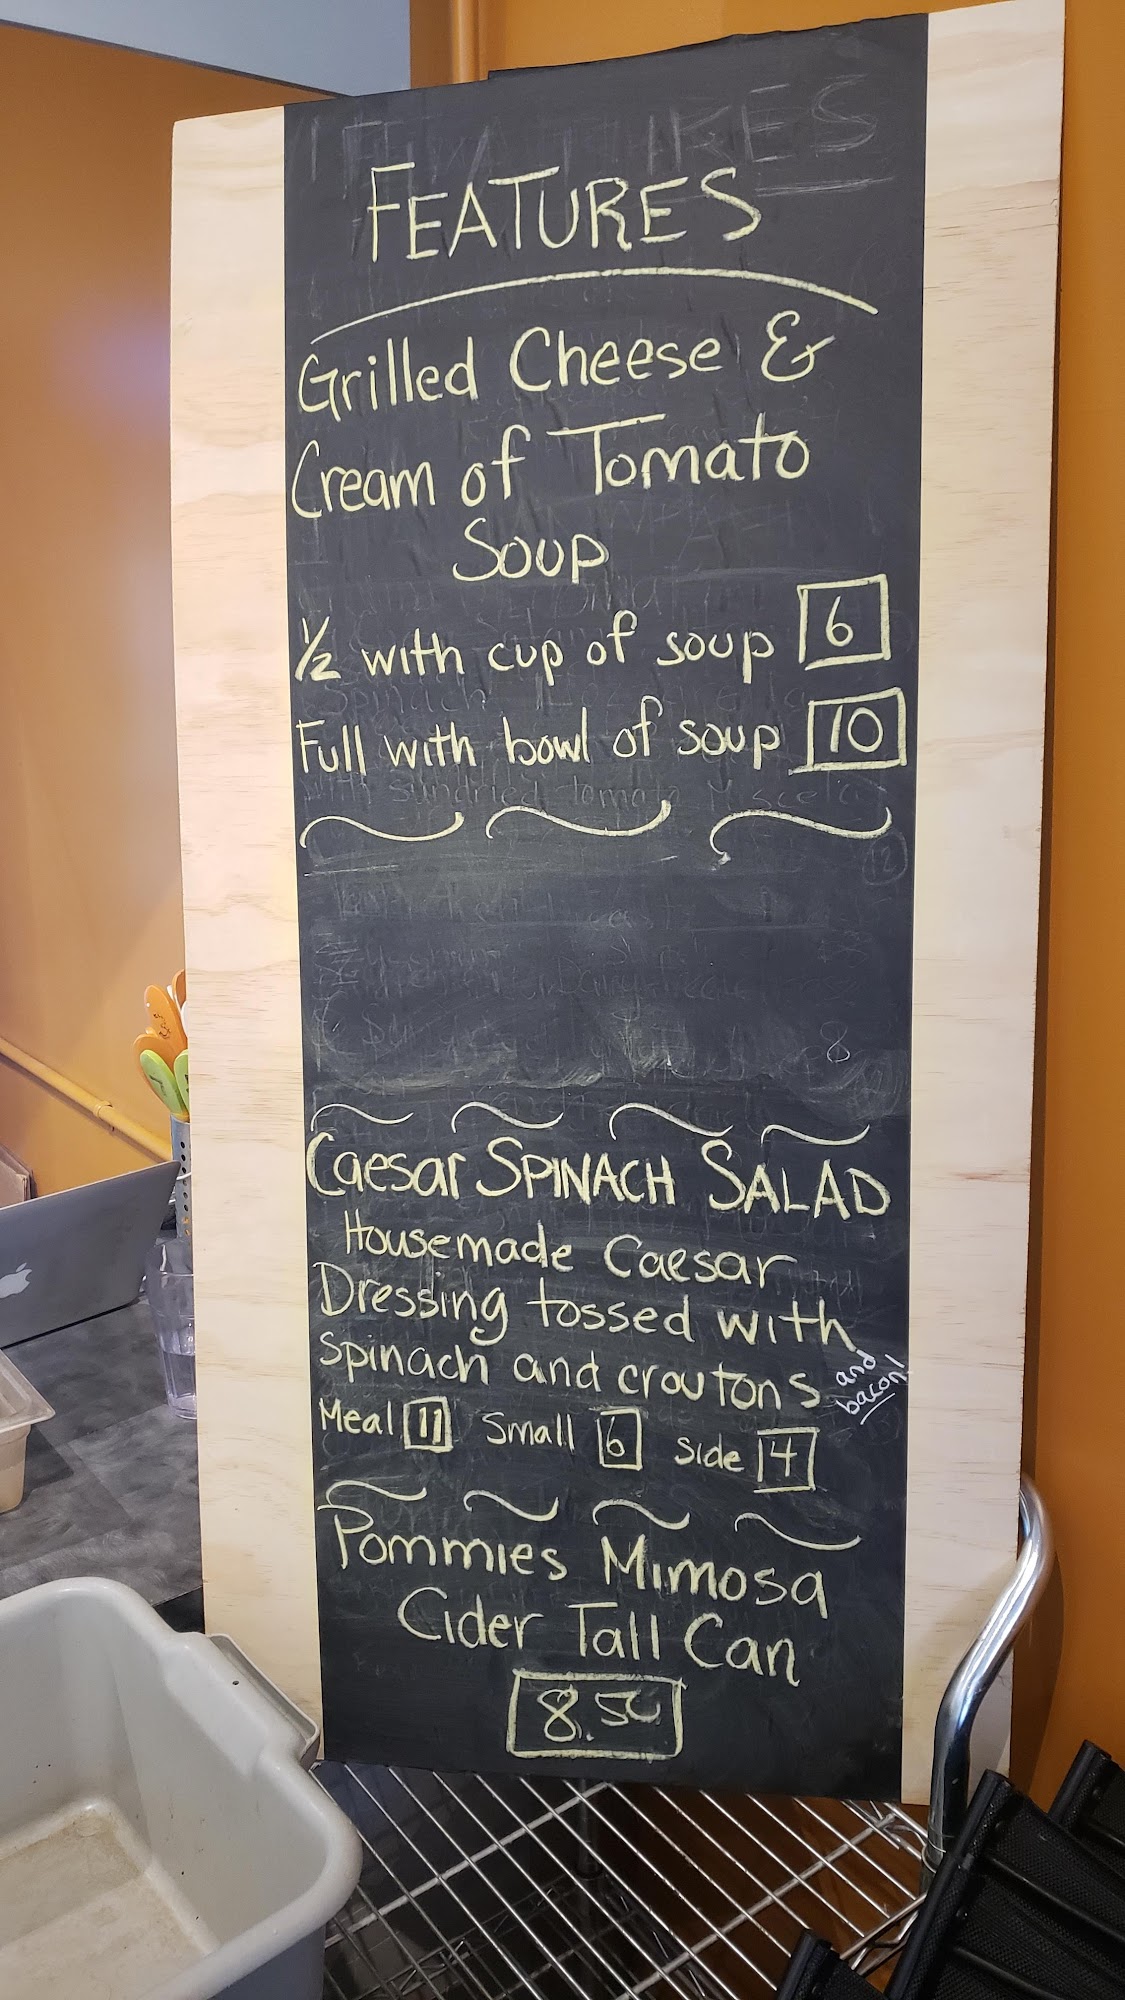 FEATURES
Grilled Cheese &
Cream of Tomato
Soup
½ with cup of soup 6
Full with bowl of soup 10
Caesar SPINACH SALAD
Housemade Caesar
Dressing tossed with
spinach and croutons and bacon!
Meal 11 Small 6 Side 4
Pommies Mimosa
Cider Tall Can
8.50